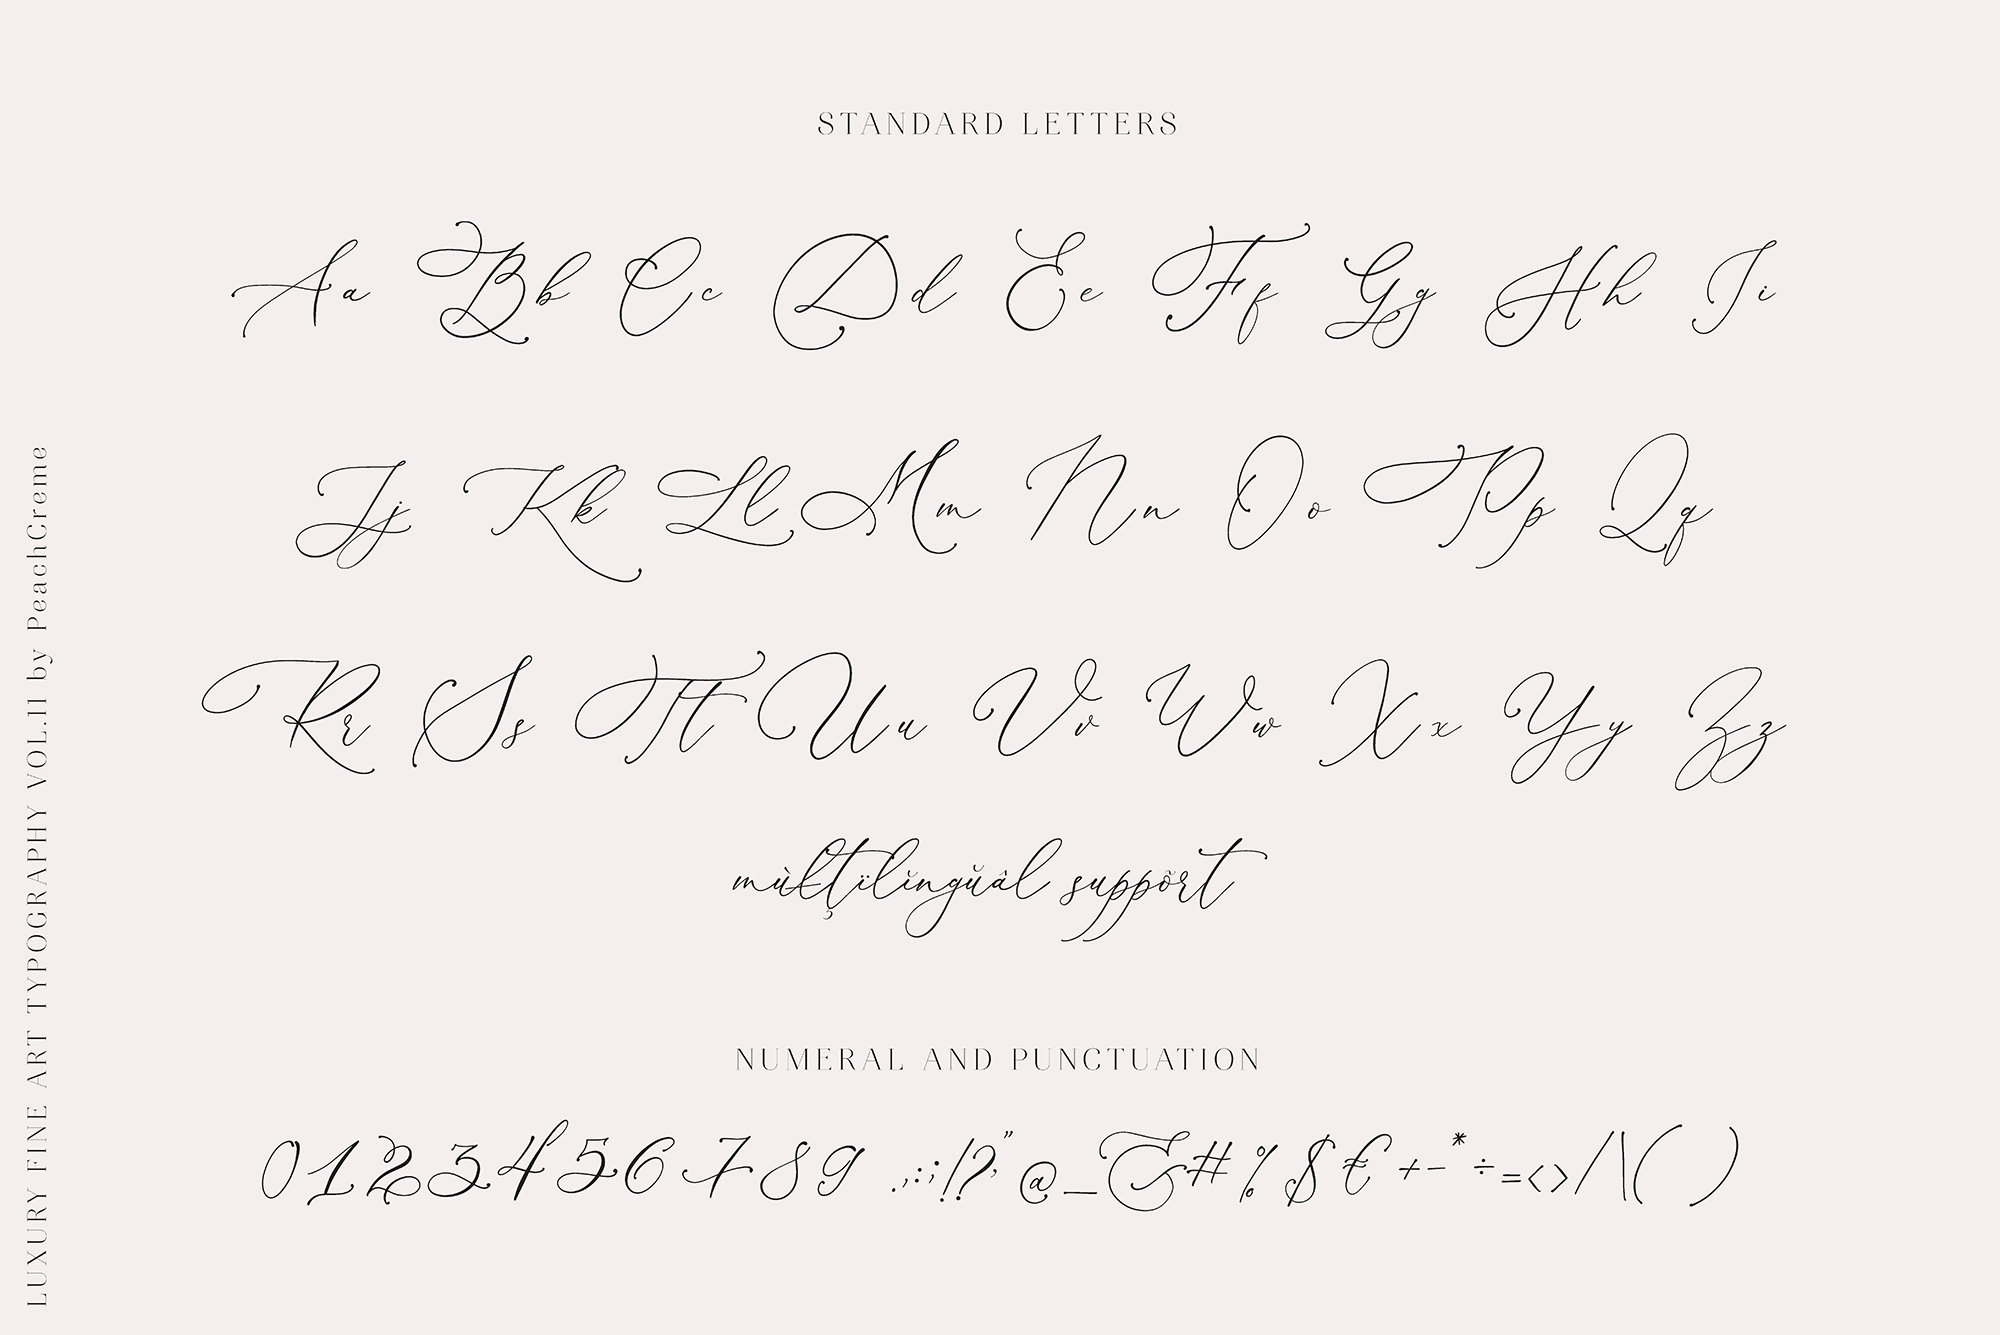 STANDARD LETTERS
Aa Bb Cc Dd Ee Ff Gg Hh Ii
Jj Kk Ll Mm Nn Oo Pp Qq
Rr Ss Tt Uu Vv Ww Xx Yy Zz
mùłţïlĭngŭâl suppõrt
NUMERAL AND PUNCTUATION
0123456789 .,:;!?," @_&#%$€+-*÷=<>/|\( )
LUXURY FINE ART TYPOGRAPHY VOL.II by PeachCreme